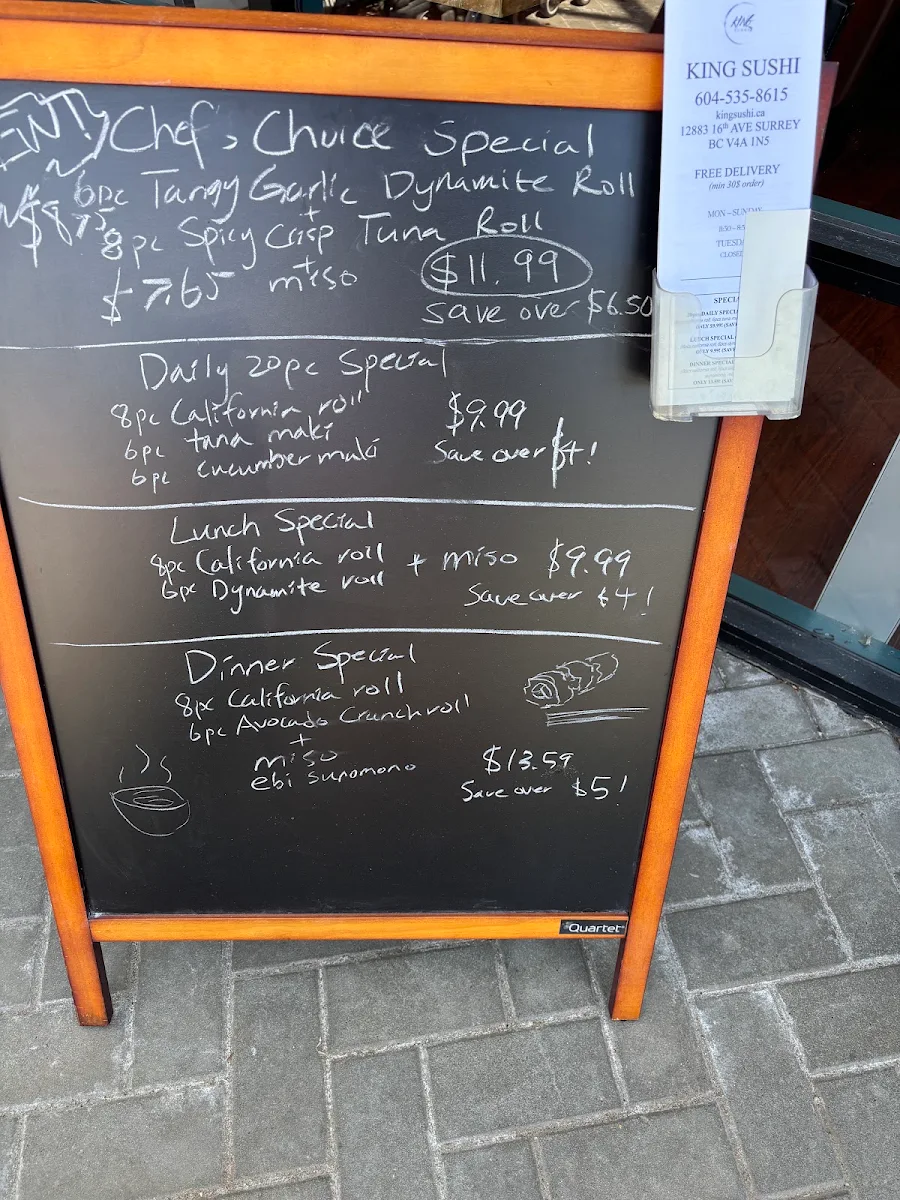 ENT!
Chef's Choice Special
6pc Tangy Garlic Dynamite Roll
+
$8.75
8pc Spicy Crisp Tuna Roll
+
$7.65 miso $11.99
save over $6.50
Daily 20pc Special
8pc California roll
6pc tana maki
6pc cucumber maki
$9.99
Save over $4!
Lunch Special
8pc California roll
6pc Dynamite roll
+ miso $9.99
Save over $4!
Dinner Special
8pc California roll
6pc Avocado Crunch roll
+
miso
ebi sunomono
$13.59
Save over $5!
Quartet
KING SUSHI
604-535-8615
kingsushi.ca
12883 16th AVE SURREY
BC V4A 1N5
FREE DELIVERY
(min 30$ order)
MON – SUNDAY
TUESD
CLOSE
SPECIA
DAILY SPECI
LUNCH SPECIAL
DINNER SPECIAL